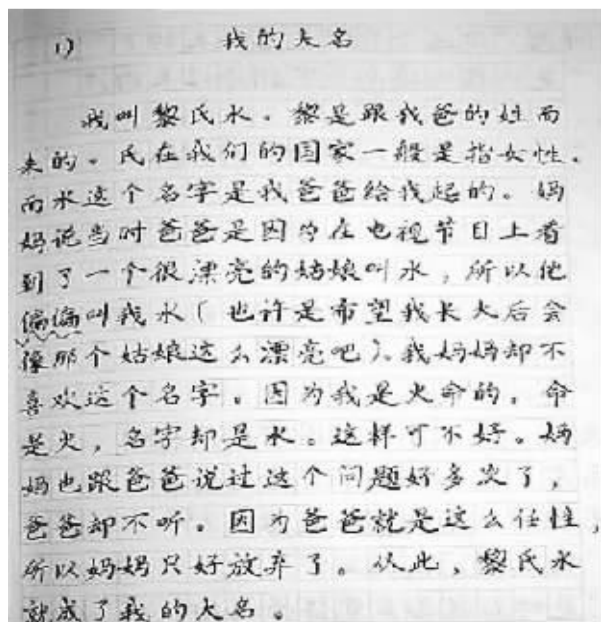 1) 我的大名
我叫黎氏水。黎是跟我爸的姓而
来的。氏在我们的国家一般是指女性.
而水这个名字是我爸爸给我起的。妈
妈说当时爸爸是因为在电视节目上看
到了一个很漂亮的姑娘叫水，所以他
偏偏叫我水（也许是希望我长大后会
像那个姑娘这么漂亮吧）。我妈妈却不
喜欢这个名字。因为我是火命的。命
是火，名字却是水。这样可不好。妈
妈也跟爸爸说过这个问题好多次了，
爸爸却不听。因为爸爸就是这么任性，
所以妈妈只好放弃了。从此，黎氏水
就成了我的大名。